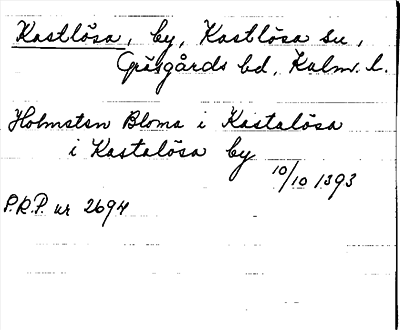 Kastlösa, by, Kastlösa sn,
Gräsgårds hd, Kalm. l.
Holmsten Bloma i Kastalösa
i Kastalösa by
10/10 1393
P.R.P. nr 2694